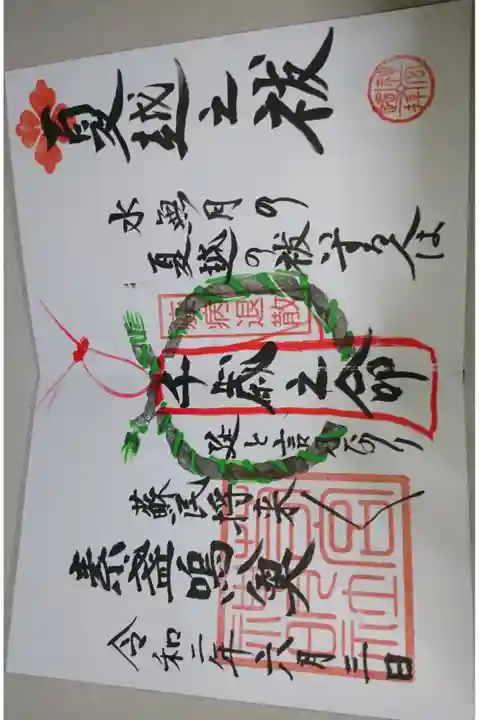 夏越之祓
水無月の
夏越の祓する人は
疫病退散
千歳之命
延と言ふなり
蘇民将来
素盞嗚尊
令和二年六月三日